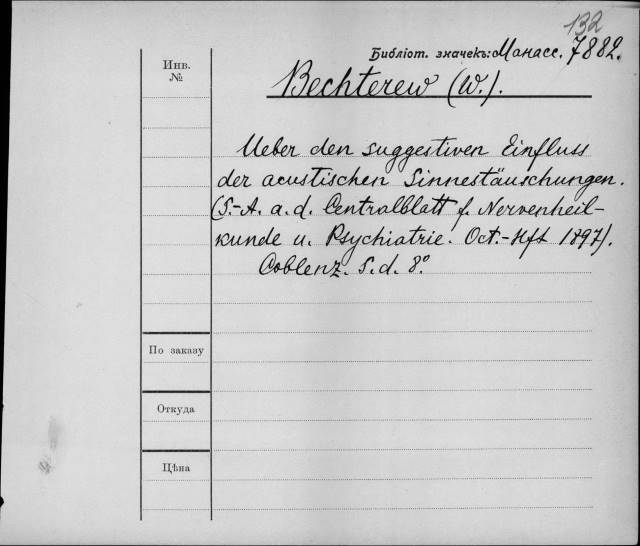 132
Библіот. значекъ: Манасс. 7882.
Инв.
№
Bechterew (W.).
Ueber den suggestiven Einfluss
der acustischen Sinnestäuschungen.
(S.-A. a. d. Centralblatt f. Nervenheil-
kunde u. Psychiatrie. Oct.-Hft 1897).
Coblenz. S. d. 8°.
По заказу
Откуда
Цѣна